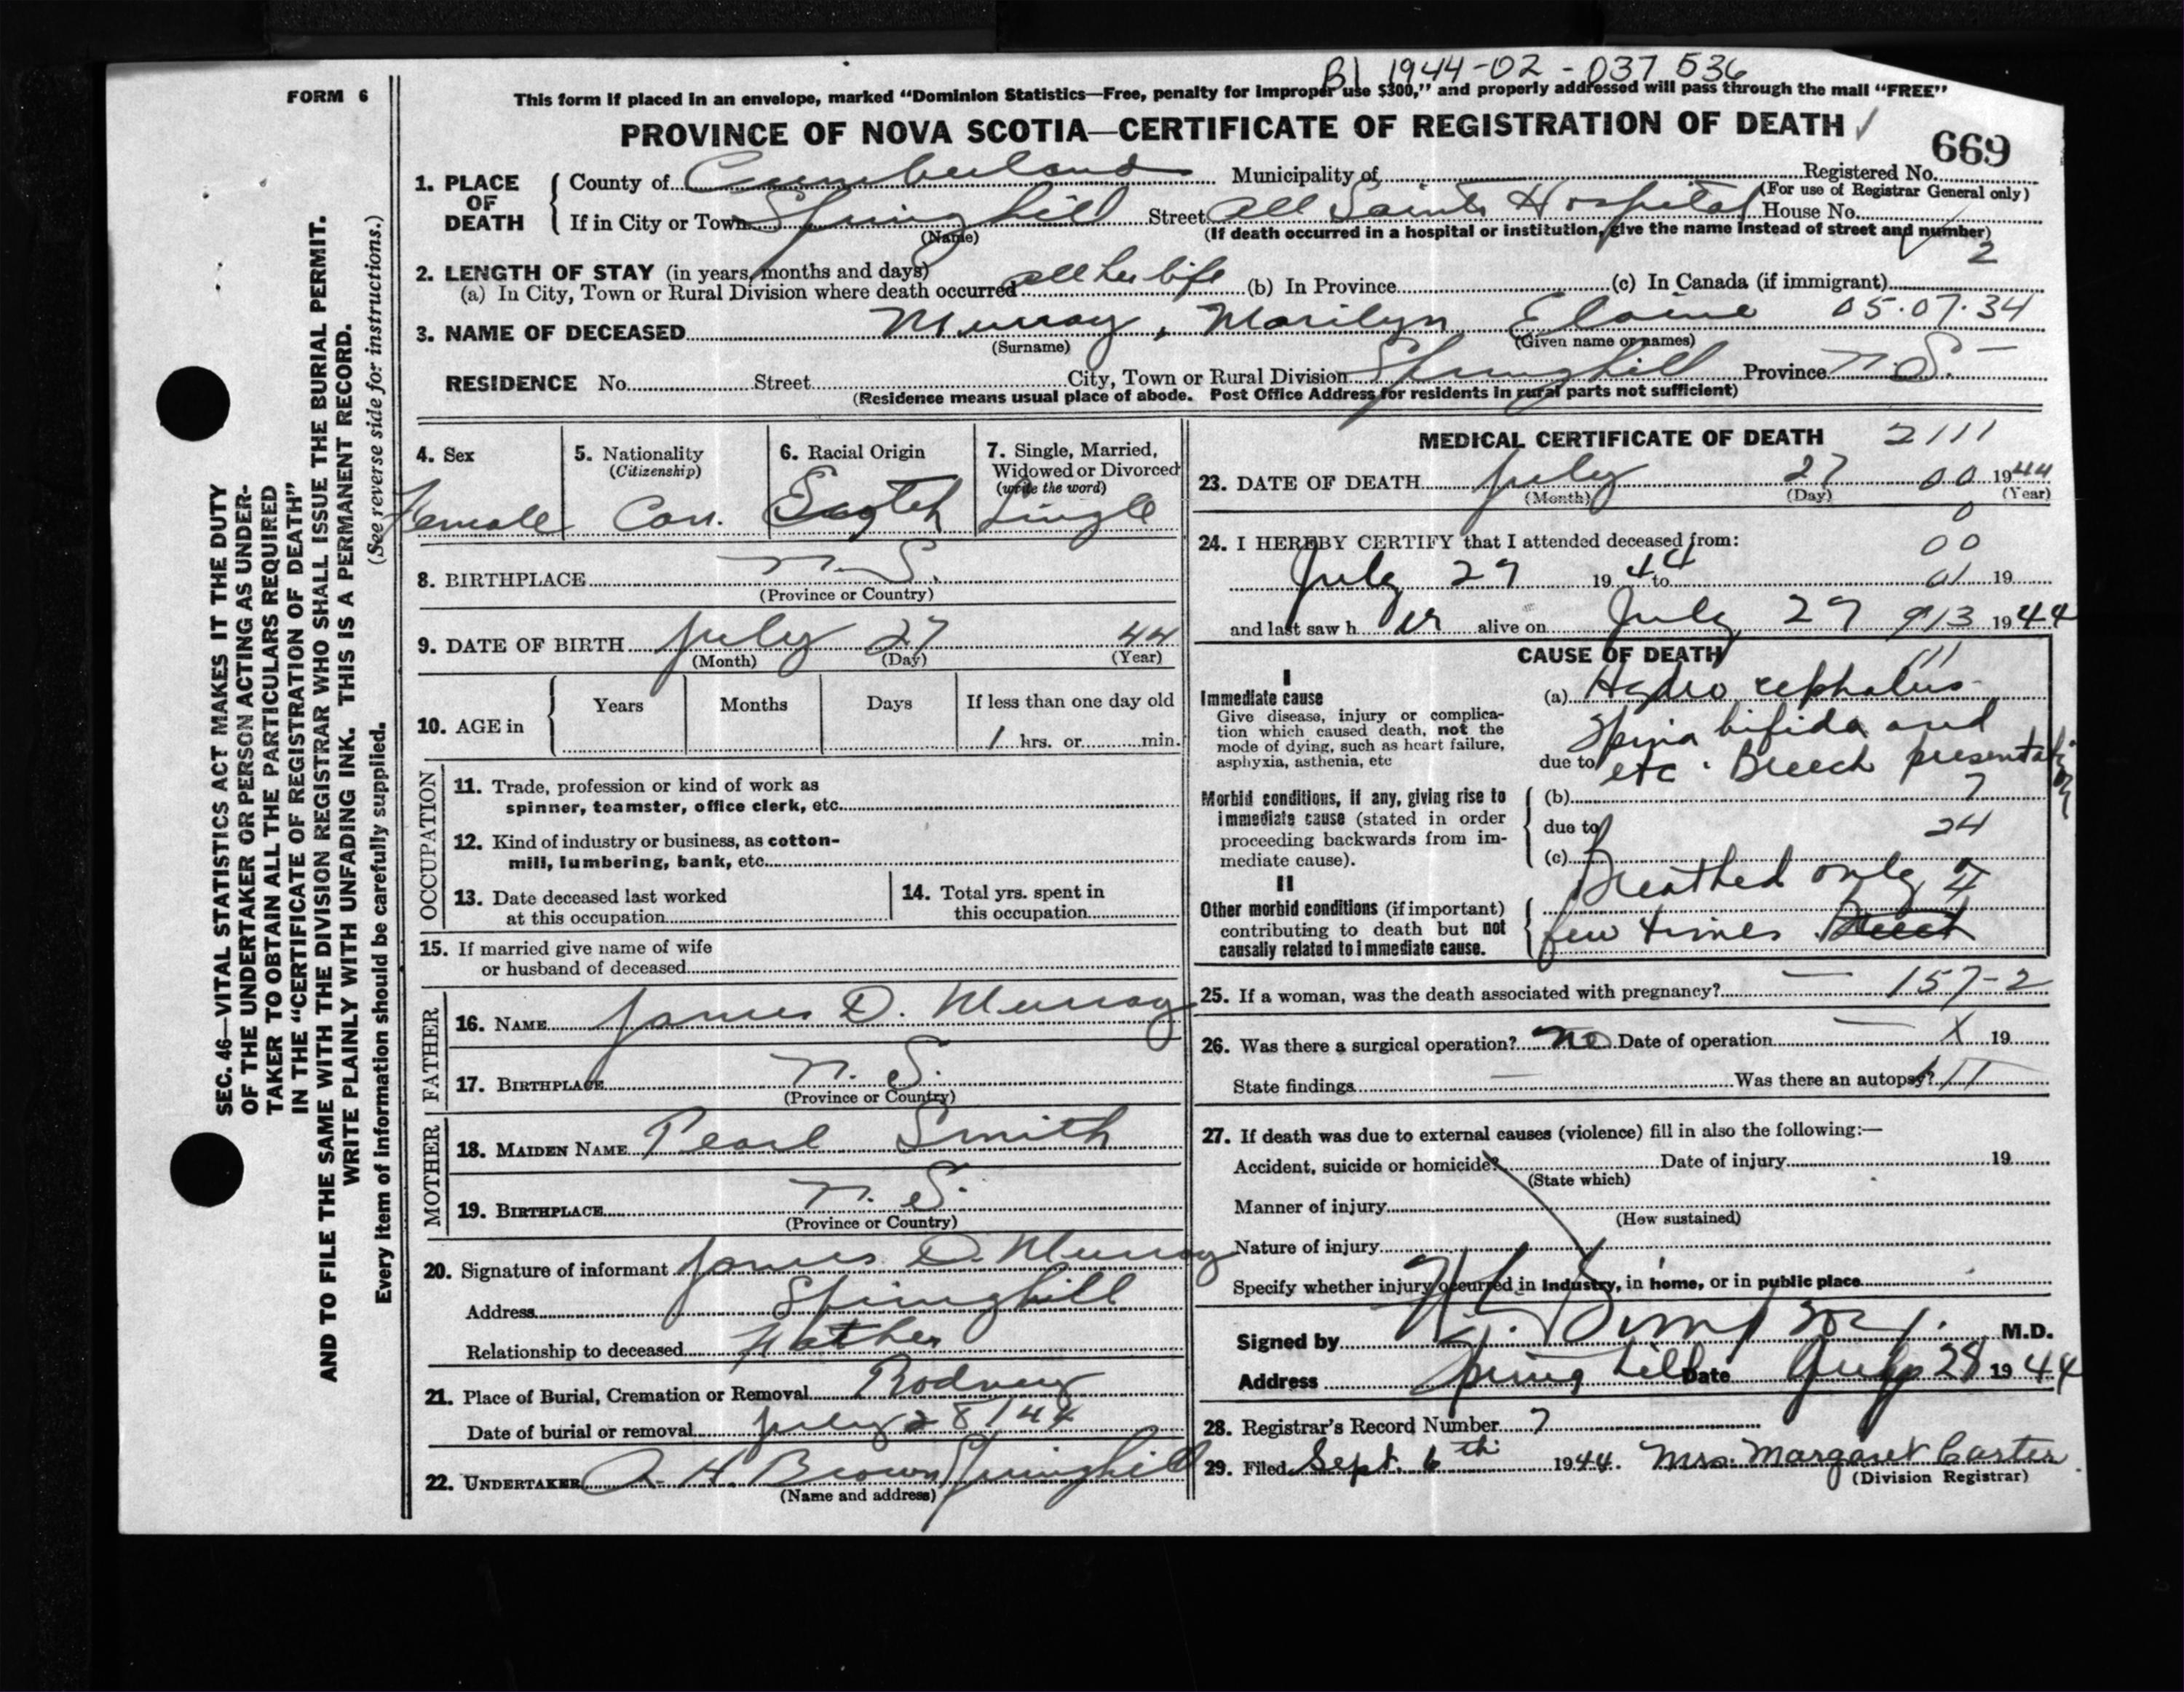 B1 1944-02-037536
FORM 6
This form if placed in an envelope, marked "Dominion Statistics—Free, penalty for improper use $300," and properly addressed will pass through the mail "FREE"
PROVINCE OF NOVA SCOTIA—CERTIFICATE OF REGISTRATION OF DEATH
669
1. PLACE OF DEATH { County of Cumberland Municipality of Registered No.
(For use of Registrar General only)
If in City or Town Springhill Street All Saints Hospital House No.
(Name) (If death occurred in a hospital or institution, give the name instead of street and number)
2
2. LENGTH OF STAY (in years, months and days)
(a) In City, Town or Rural Division where death occurred all her life (b) In Province (c) In Canada (if immigrant)
3. NAME OF DECEASED Murray, Marilyn Elaine 05.07.34
(Surname) (Given name or names)
RESIDENCE No. Street City, Town or Rural Division Springhill Province N.S.
(Residence means usual place of abode. Post Office Address for residents in rural parts not sufficient)
4. Sex 5. Nationality (Citizenship) 6. Racial Origin 7. Single, Married, Widowed or Divorced (write the word)
Female Can. Scotch Single
8. BIRTHPLACE N.S.
(Province or Country)
9. DATE OF BIRTH July 27 44
(Month) (Day) (Year)
10. AGE in { Years Months Days If less than one day old
1 hrs. or min.
OCCUPATION
11. Trade, profession or kind of work as
spinner, teamster, office clerk, etc.
12. Kind of industry or business, as cotton-
mill, lumbering, bank, etc.
13. Date deceased last worked
at this occupation
14. Total yrs. spent in
this occupation
15. If married give name of wife
or husband of deceased
FATHER
16. NAME James D. Murray
17. BIRTHPLACE N.S.
(Province or Country)
MOTHER
18. MAIDEN NAME Pearl Smith
19. BIRTHPLACE N.S.
(Province or Country)
20. Signature of informant James D. Murray
Address Springhill
Relationship to deceased Father
21. Place of Burial, Cremation or Removal Rodney
Date of burial or removal July 28/44
22. UNDERTAKER A. H. Brown Springhill
(Name and address)
MEDICAL CERTIFICATE OF DEATH 2111
23. DATE OF DEATH July 27 00 1944
(Month) (Day) (Year)
0
24. I HEREBY CERTIFY that I attended deceased from:
00
July 27 1944 to 01 19
and last saw h er alive on July 27 913 1944
CAUSE OF DEATH
111
I
Immediate cause
Give disease, injury or complica-
tion which caused death, not the
mode of dying, such as heart failure,
asphyxia, asthenia, etc
(a) Hydrocephalus
Spina bifida and
due to etc. Breech presentation
Morbid conditions, if any, giving rise to
immediate cause (stated in order
proceeding backwards from im-
mediate cause).
(b) 7
due to 24
(c)
II
Other morbid conditions (if important)
contributing to death but not
causally related to immediate cause.
Breathed only
few times
25. If a woman, was the death associated with pregnancy? — 157-2
26. Was there a surgical operation? No Date of operation — X 19
State findings — Was there an autopsy?
27. If death was due to external causes (violence) fill in also the following:—
Accident, suicide or homicide? Date of injury 19
(State which)
Manner of injury
(How sustained)
Nature of injury
Specify whether injury occurred in industry, in home, or in public place
Signed by M.D.
Address Springhill Date July 28 1944
28. Registrar's Record Number 7
29. Filed Sept. 6th 1944. Mrs. Margaret Carter
(Division Registrar)
SEC. 46—VITAL STATISTICS ACT MAKES IT THE DUTY
OF THE UNDERTAKER OR PERSON ACTING AS UNDER-
TAKER TO OBTAIN ALL THE PARTICULARS REQUIRED
IN THE "CERTIFICATE OF REGISTRATION OF DEATH"
AND TO FILE THE SAME WITH THE DIVISION REGISTRAR WHO SHALL ISSUE THE BURIAL PERMIT.
WRITE PLAINLY WITH UNFADING INK. THIS IS A PERMANENT RECORD.
(See reverse side for instructions.)
Every item of information should be carefully supplied.